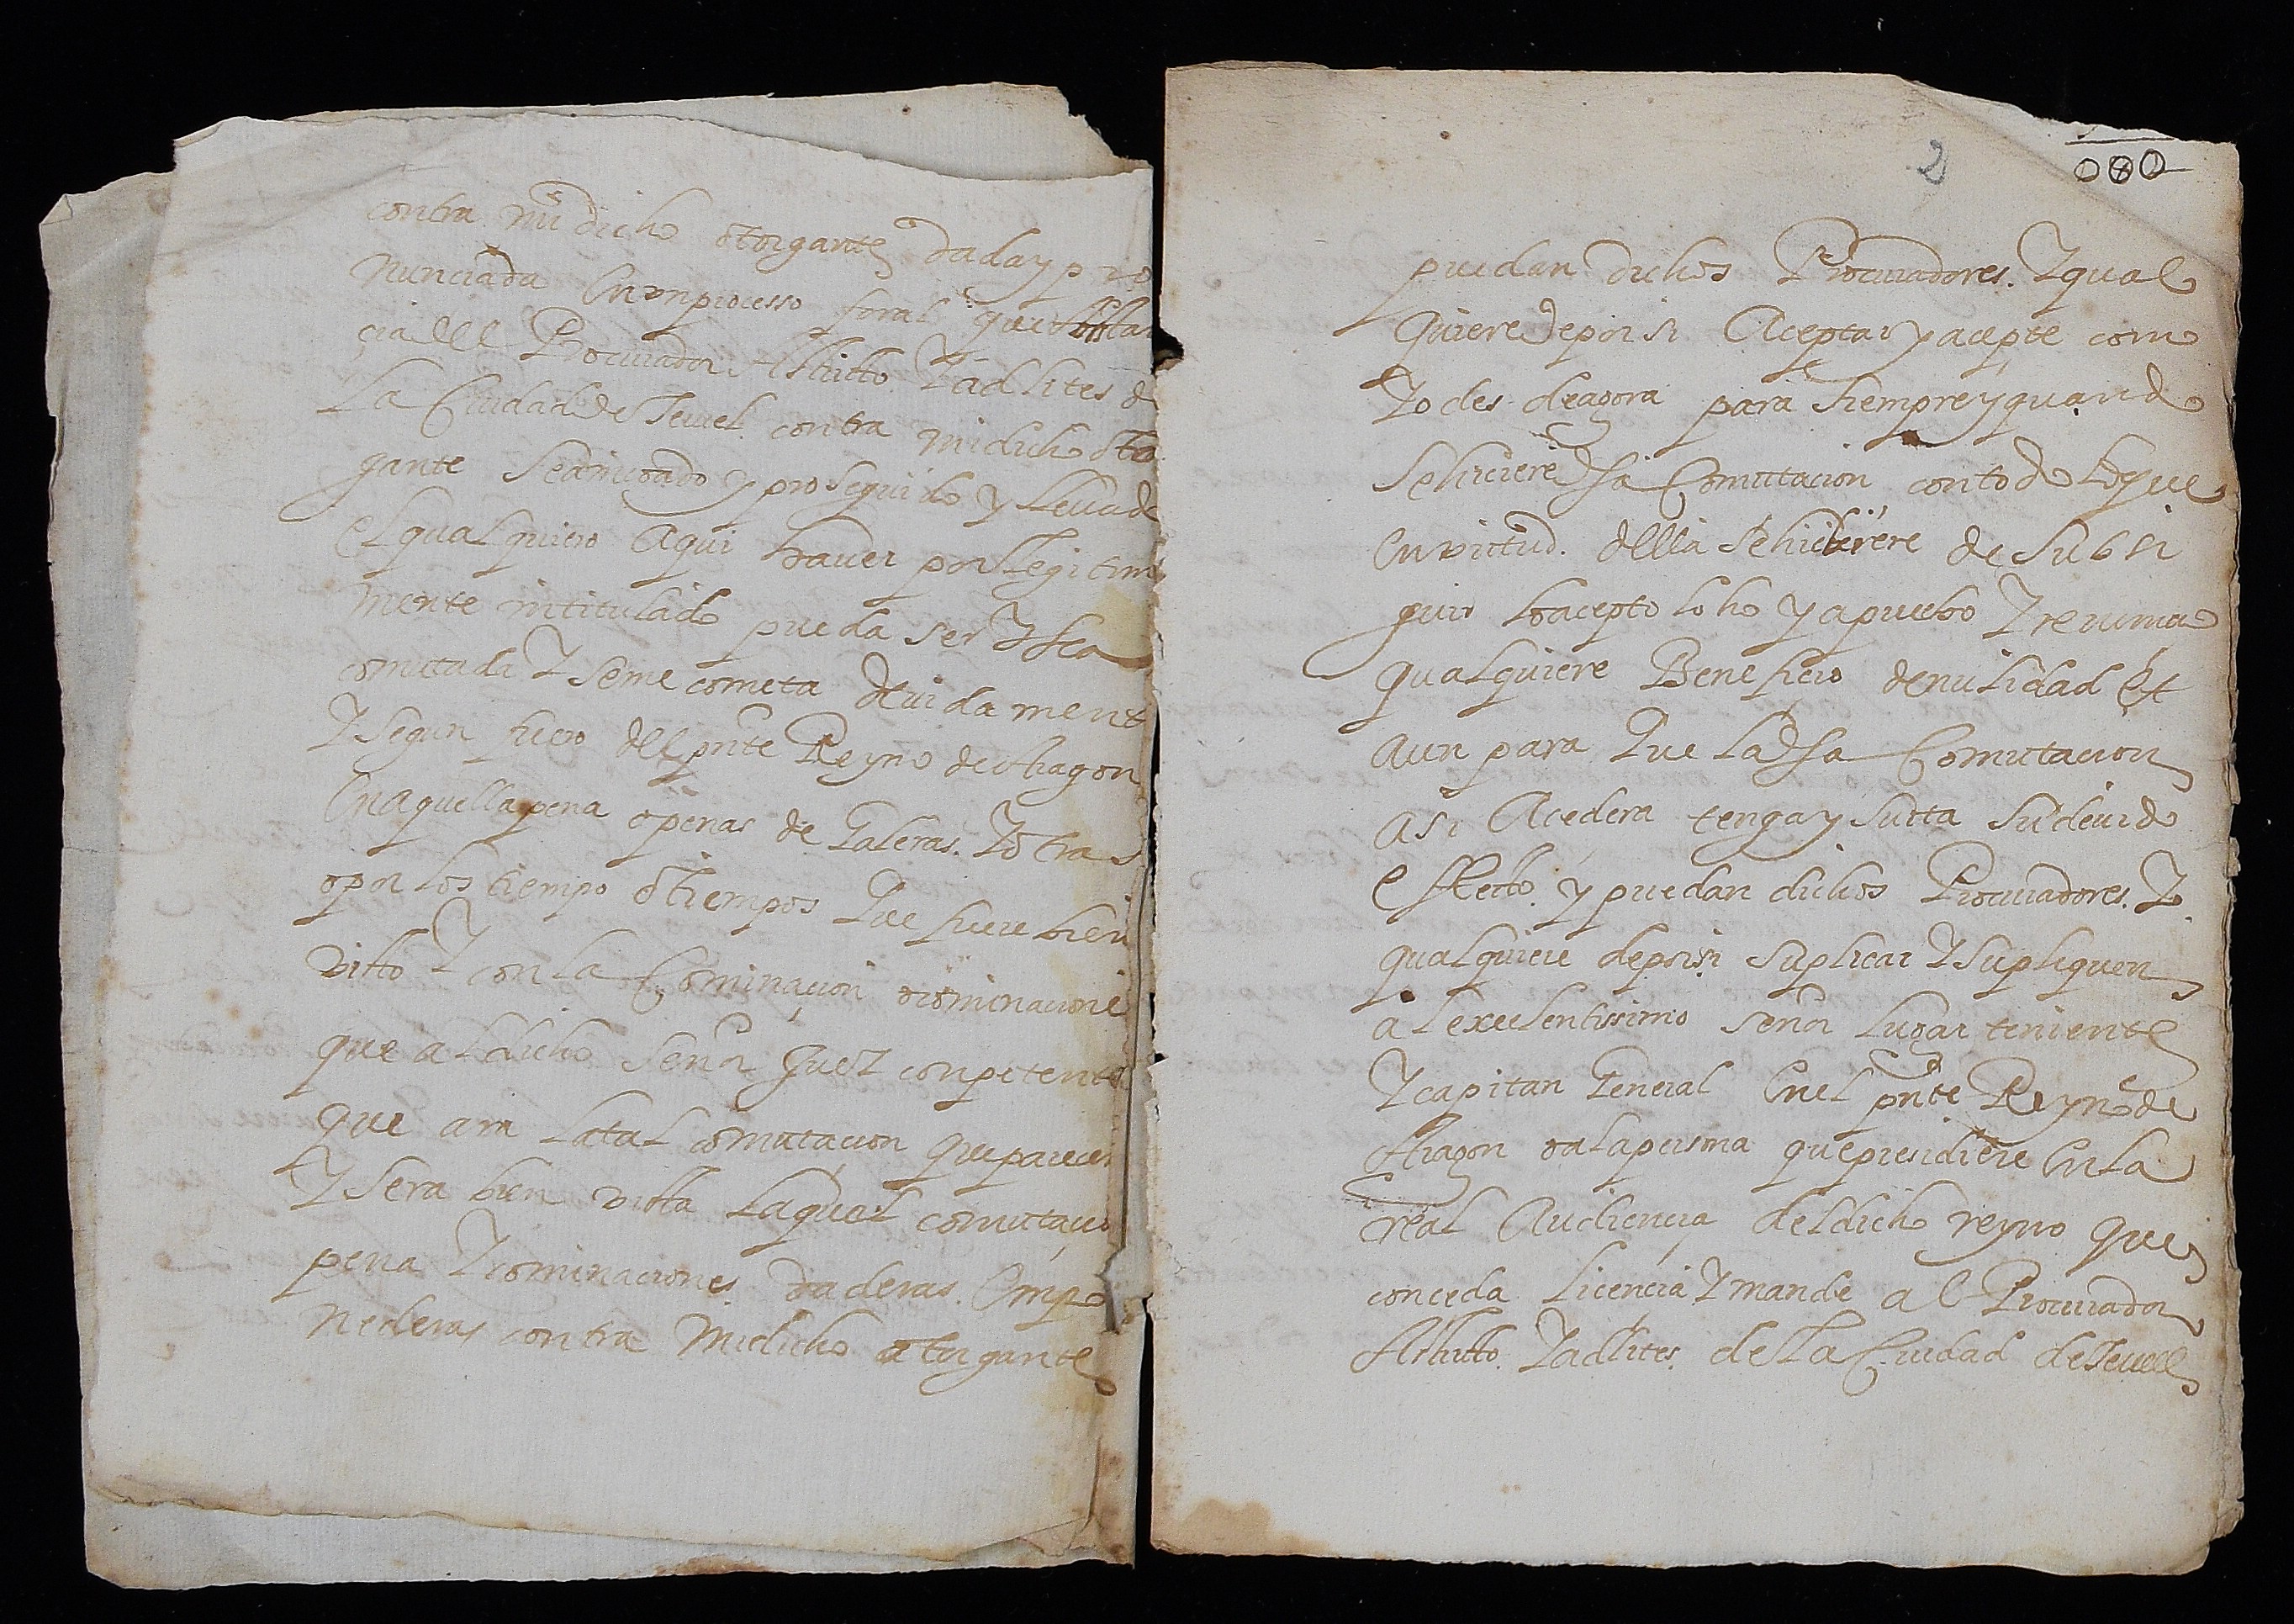 contra mi dicho otorgante dada y pro
nunciada En vn processo foral que a Instan
çia del Procurador Astricto Y ad lites de
La Ciudad de Teruel contra mi dicho otor
gante se a intitado y proseguido y lleuado
el qual quiero Aqui hauer por Legitima
mente intitulado pueda ser Y sea
comutada Y se me cometa deuidament
Y segun fuero del pnte Reyno de Aragon
En aquella pena o penas de Galeras. Y otras
o por los tiempo o tiempos Que fuere bien
visto Y con la Cominaçion o cominacione
que al dicho Señor Juez conpetente
que ara La tal comutacion que parecer
Y sera bien vista La qual comutacio
pena Y cominaciones daderas. E inpo
nederas contra Mi dicho otorgante
2
000
puedan dichos Procuradores. Y qual
quiere de por si Aceptar y acepte como
Yo des de agora para siempre y quando
se hiciere dha Comutacion con todo Lo que
En virtud. della se hiciere de subsi
guio Lo acepto loho y apruebo Y renuncio
qualquiere Beneficio de nulidad Et
aun para Que La dha Comutacion
asi Acedera tenga y surta su deuido
effecto. y puedan dichos Procuradores. Yo
qualquiere de por si suplicar Y supliquen
al excelentissimo señor Lugar teniente
Y capitan General En el pnte Reyno de
Aragon o a la persona que presidiere En la
real Audiençia del dicho reyno que
conceda Licencia Y mande al Procurador
Astricto. Y ad lites. de La Ciudad de Teruel